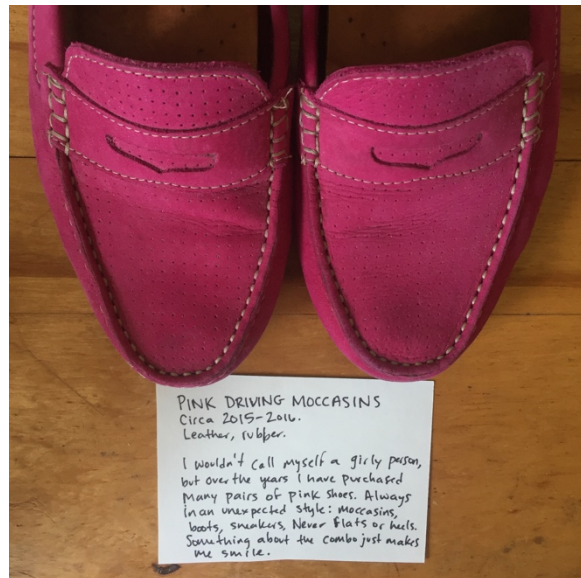 PINK DRIVING MOCCASINS
Circa 2015-2016.
Leather, rubber.
I wouldn't call myself a girly person,
but over the years I have purchased
many pairs of pink shoes. Always
in an unexpected style: moccasins,
boots, sneakers, Never flats or heels.
Something about the combo just makes
me smile.